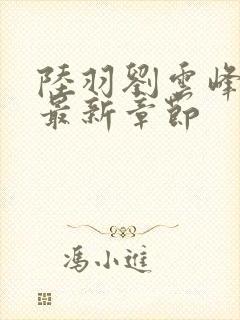 陸羽劉雲峰
最新章節
馮小進